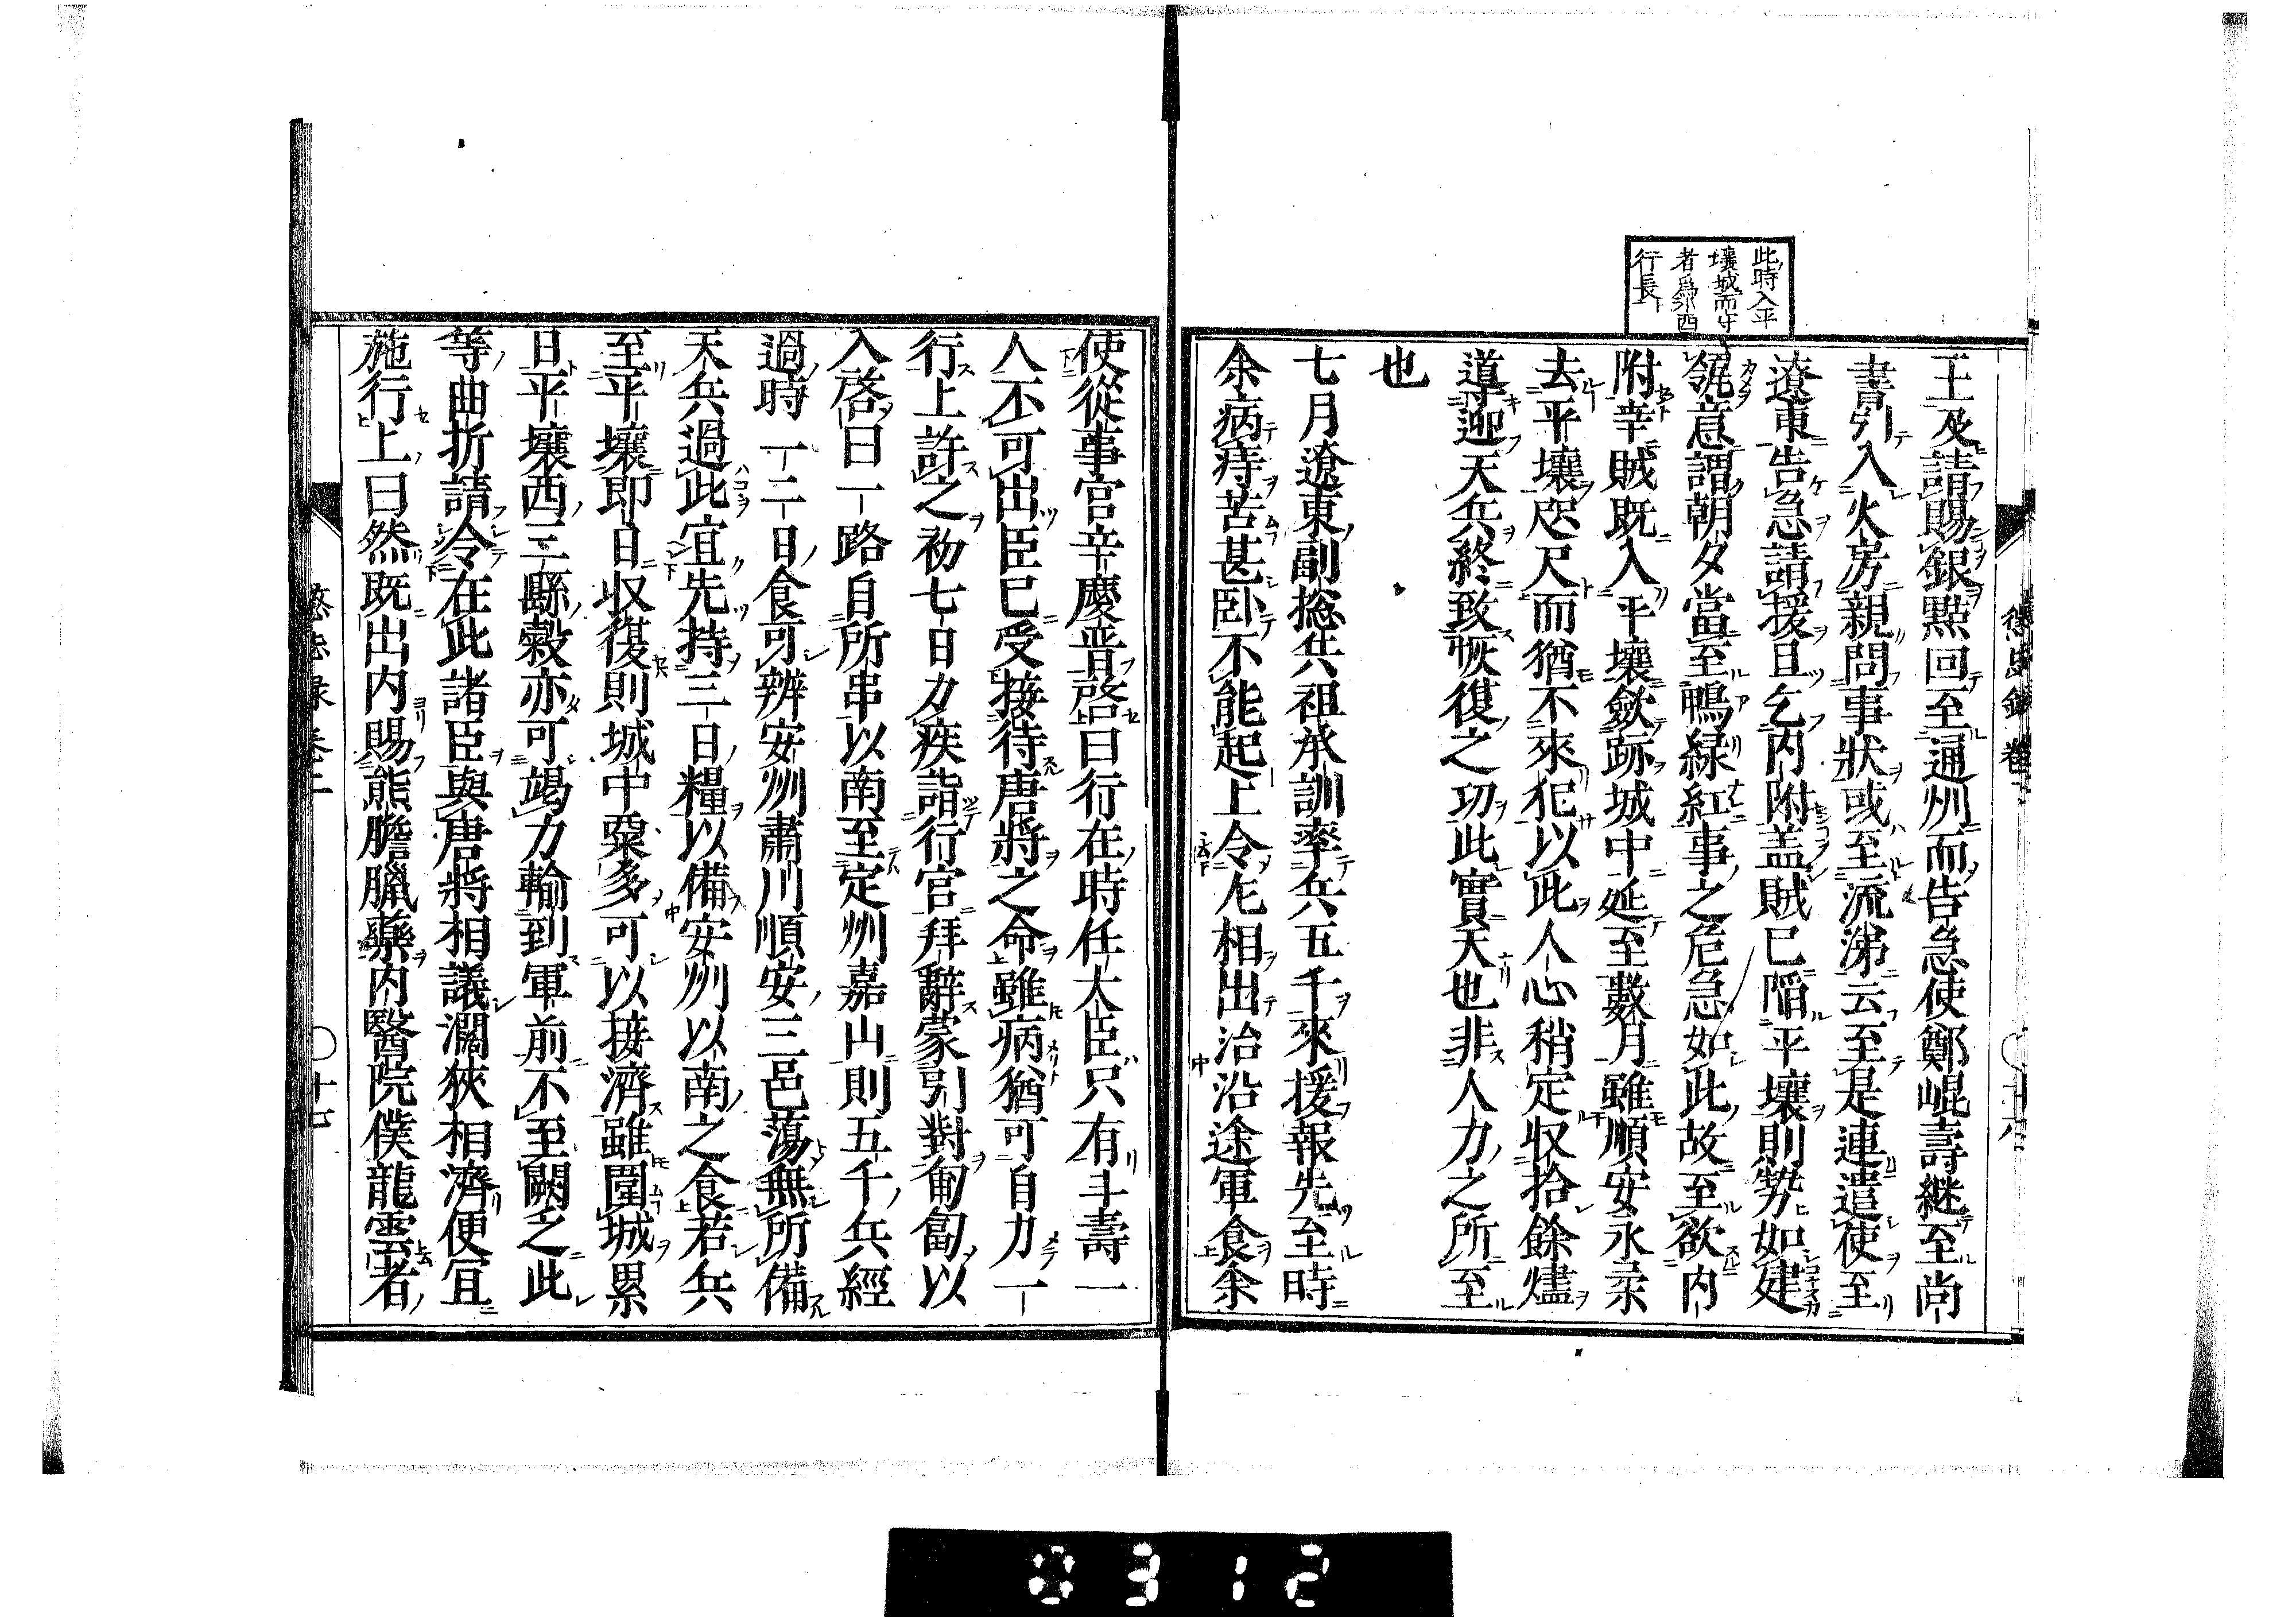 此時入平
壤城而守
者爲小西
行長
王及請賜銀㸃回至通州而告急使鄭崐壽継至尚
書引入火房親問事狀或至流涕云至是連遣使至
遼東告急請援且乞内附盖賊已陥平壤則勢如建
瓴意謂朝夕當至鴨緑紅事之危急如此故至欲内
附幸賊既入平壤斂跡城中延至數月雖順安永柔
去平壤咫尺而猶不來犯以此人心稍定収拾餘燼
導迎天兵終致恢復之功此實天也非人力之所至
也
七月遼東副捴兵祖承訓率兵五千來援報先至時
余病痔苦甚卧不能起上令左相出治沿途軍食余
使從事官辛慶晋啓曰行在時任大臣只有斗壽一
人不可出臣已受接待唐將之命雖病猶可自力一
行上許之初七日力疾詣行官拜辭蒙引對匍匐以
入啓曰一路自所串以南至定州嘉山則五千兵經
過時一二日食可辨安州肅川順安三邑蕩無所備
天兵過此宜先持三日糧以備安州以南之食若兵
至平壤即日収復則城中粟多可以接濟雖圍城累
日平壤西三縣穀亦可竭力輸到軍前不至闕乏此
等曲折請令在此諸臣與唐將相議濶狹相濟便冝
施行上曰然既出内賜熊膽臘藥内醫院僕龍雲者
懲毖録 卷二
十七